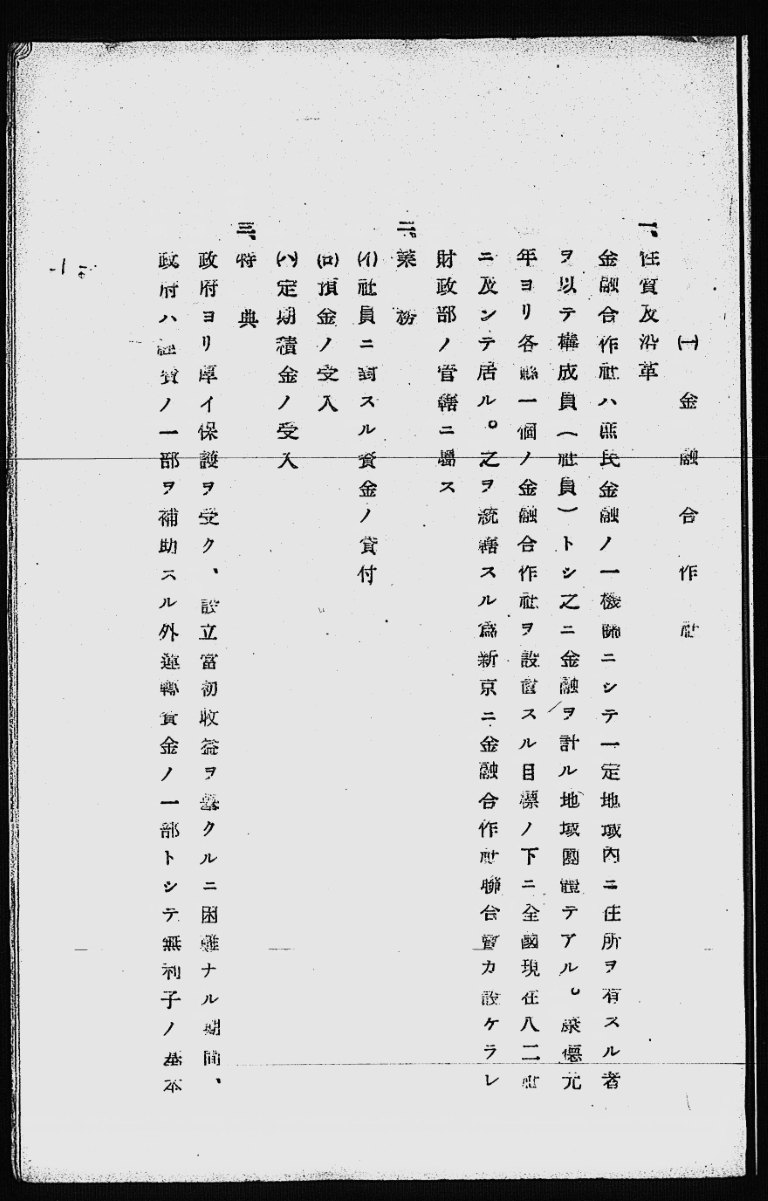 (一)金融合作社
一、性質及沿革
金融合作社ハ庶民金融ノ一機關ニシテ一定地域內ニ住所ヲ有スル者
ヲ以テ構成員(社員)トシ之ニ金融ヲ計ル地域團體テアル。康德元
年ヨリ各縣一個ノ金融合作社ヲ設置スル目標ノ下ニ全國現在八二社
ニ及ンテ居ル。之ヲ統轄スル爲新京ニ金融合作社聯合會カ設ケラレ
財政部ノ管轄ニ屬ス
二、業務
(イ)社員ニ對スル資金ノ貸付
(ロ)預金ノ受入
(ハ)定期積金ノ受入
三、特典
政府ヨリ厚イ保護ヲ受ク、設立當初收益ヲ擧クルニ困難ナル期間、
政府ハ經費ノ一部ヲ補助スル外運轉資金ノ一部トシテ無利子ノ基本